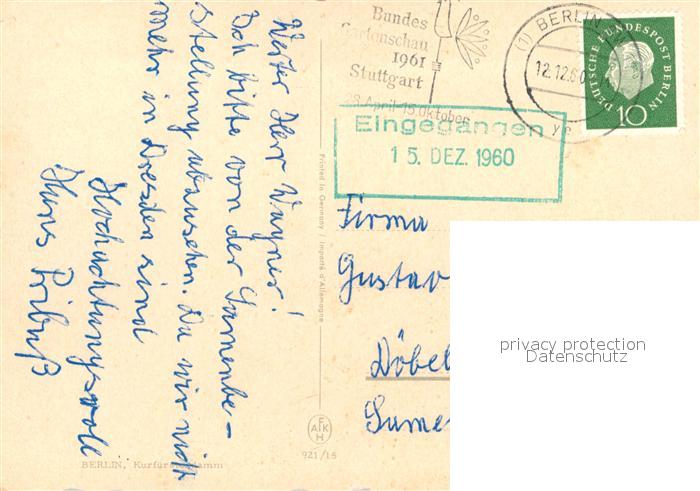 Werter Herr Wagner!
Ich bitte von der Samenbe-
stellung abzusehen. Da wir nicht
mehr in Dresden sind
Hochachtungsvoll
Hans
BERLIN, Kurfürstendamm
Printed in Germany / Importé d'Allemagne
AFKH
921/15
Bundes
Gartenschau
1961
Stuttgart
28. April-15. Oktober
(1) BERLIN
12.12.60
DEUTSCHE BUNDESPOST BERLIN
10
Eingegangen
15. DEZ. 1960
Firma
Gustav
Döbel
Same
privacy protection
Datenschutz